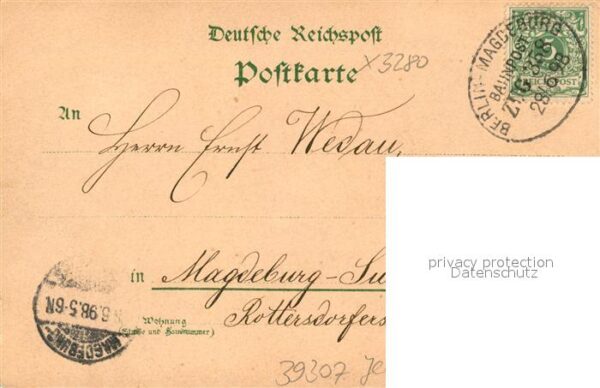 Deutsche Reichspost
Postkarte
X3280
BERLIN-MAGDEBURG
BAHNPOST
ZUG 338
28 6 98
5
REICHSPOST
An
Herrn Ernst Wedau,
privacy protection
Datenschutz
in Magdeburg-Su
Wohnung
(Straße und Hausnummer)
Rottersdorfers
6.98.5-6N
MAGDEBURG
39307 Je